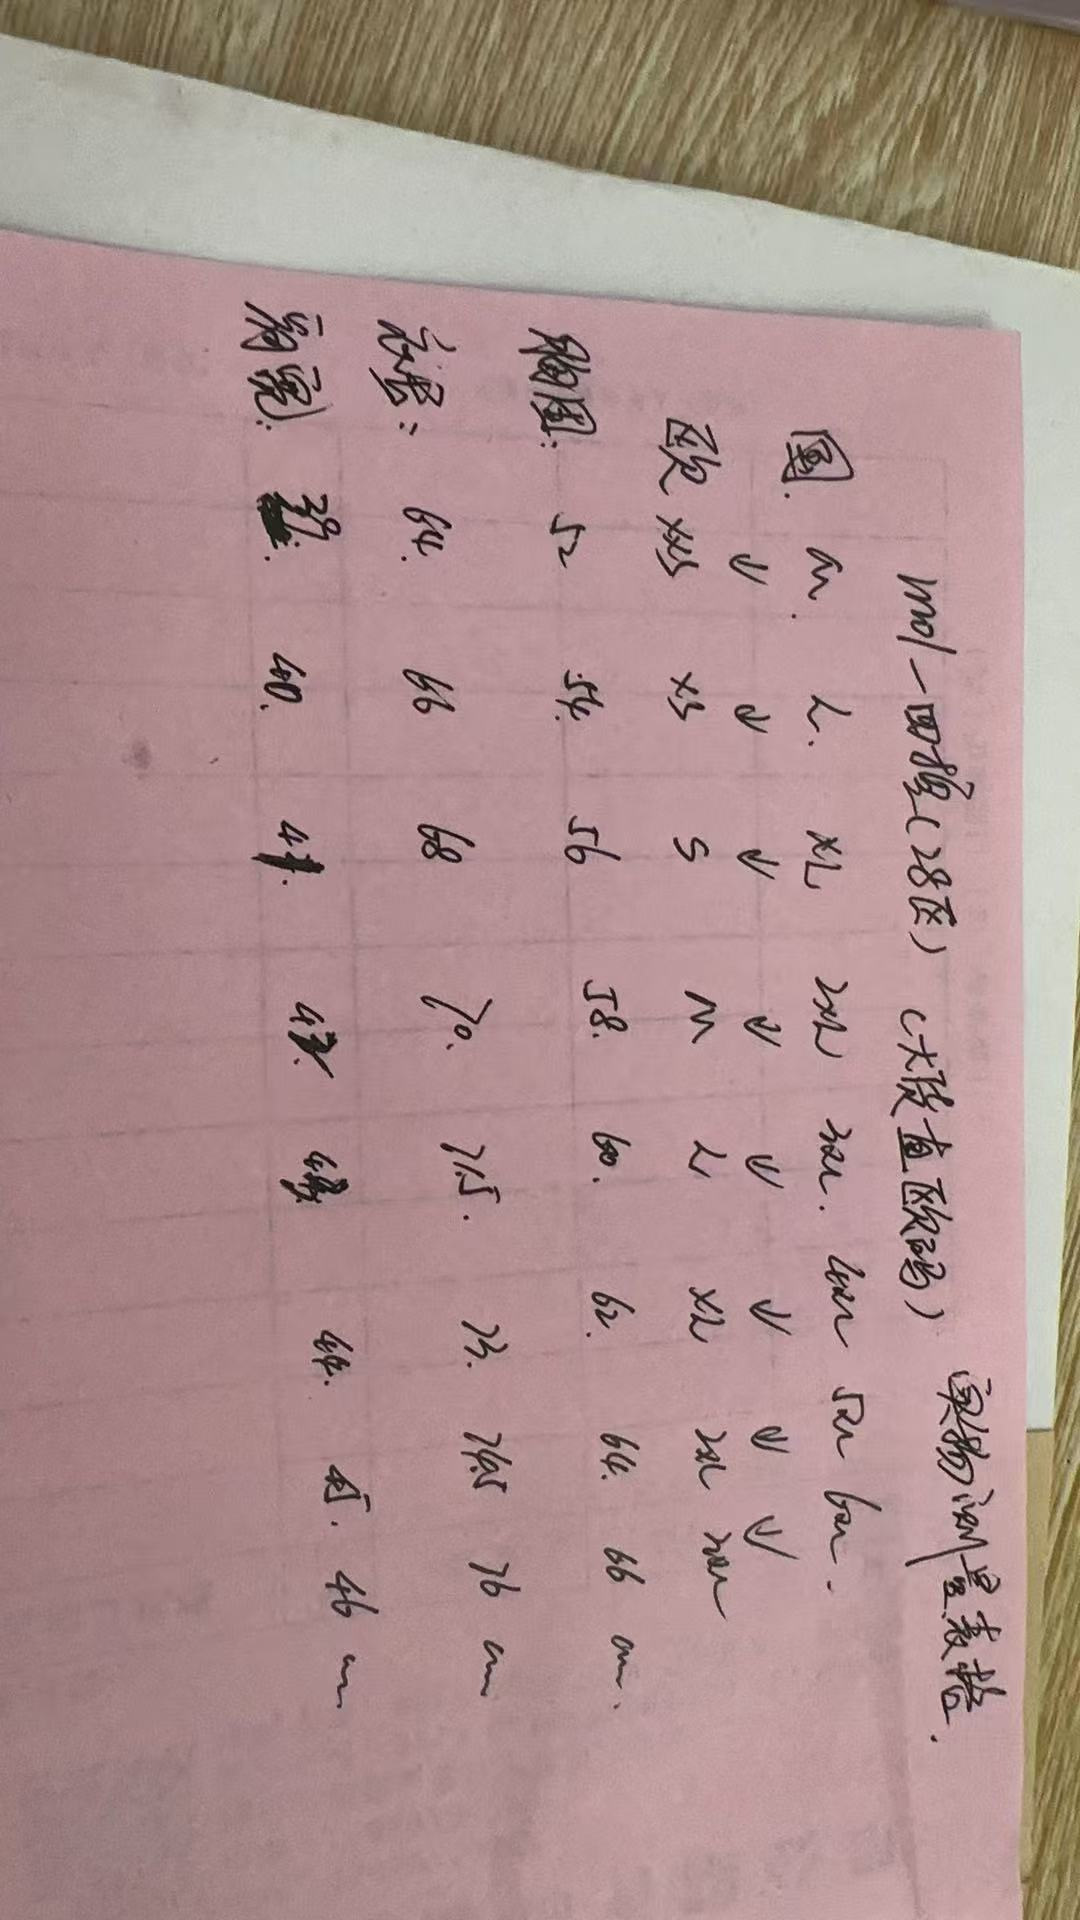 实物测量表格.
mol一四探(28区) (大陆直欧码)
国. m. L. XL 2XL 3XL. 4XL 5XL 6XL.
↓ ↓ ↓ ↓ ↓ ↓ ↓ ↓
欧 XXS XS S M L XL 2XL 3XL
胸围: 52 54. 56 58. 60. 62. 64. 66 cm.
衣长: 64. 66 68 70. 71.5. 73. 74.5 76 cm
肩宽: 39. 40. 41. 42. 43. 44. 45. 46 cm